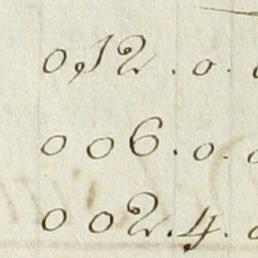 0,12.0.0
006.0.0
002.4.0